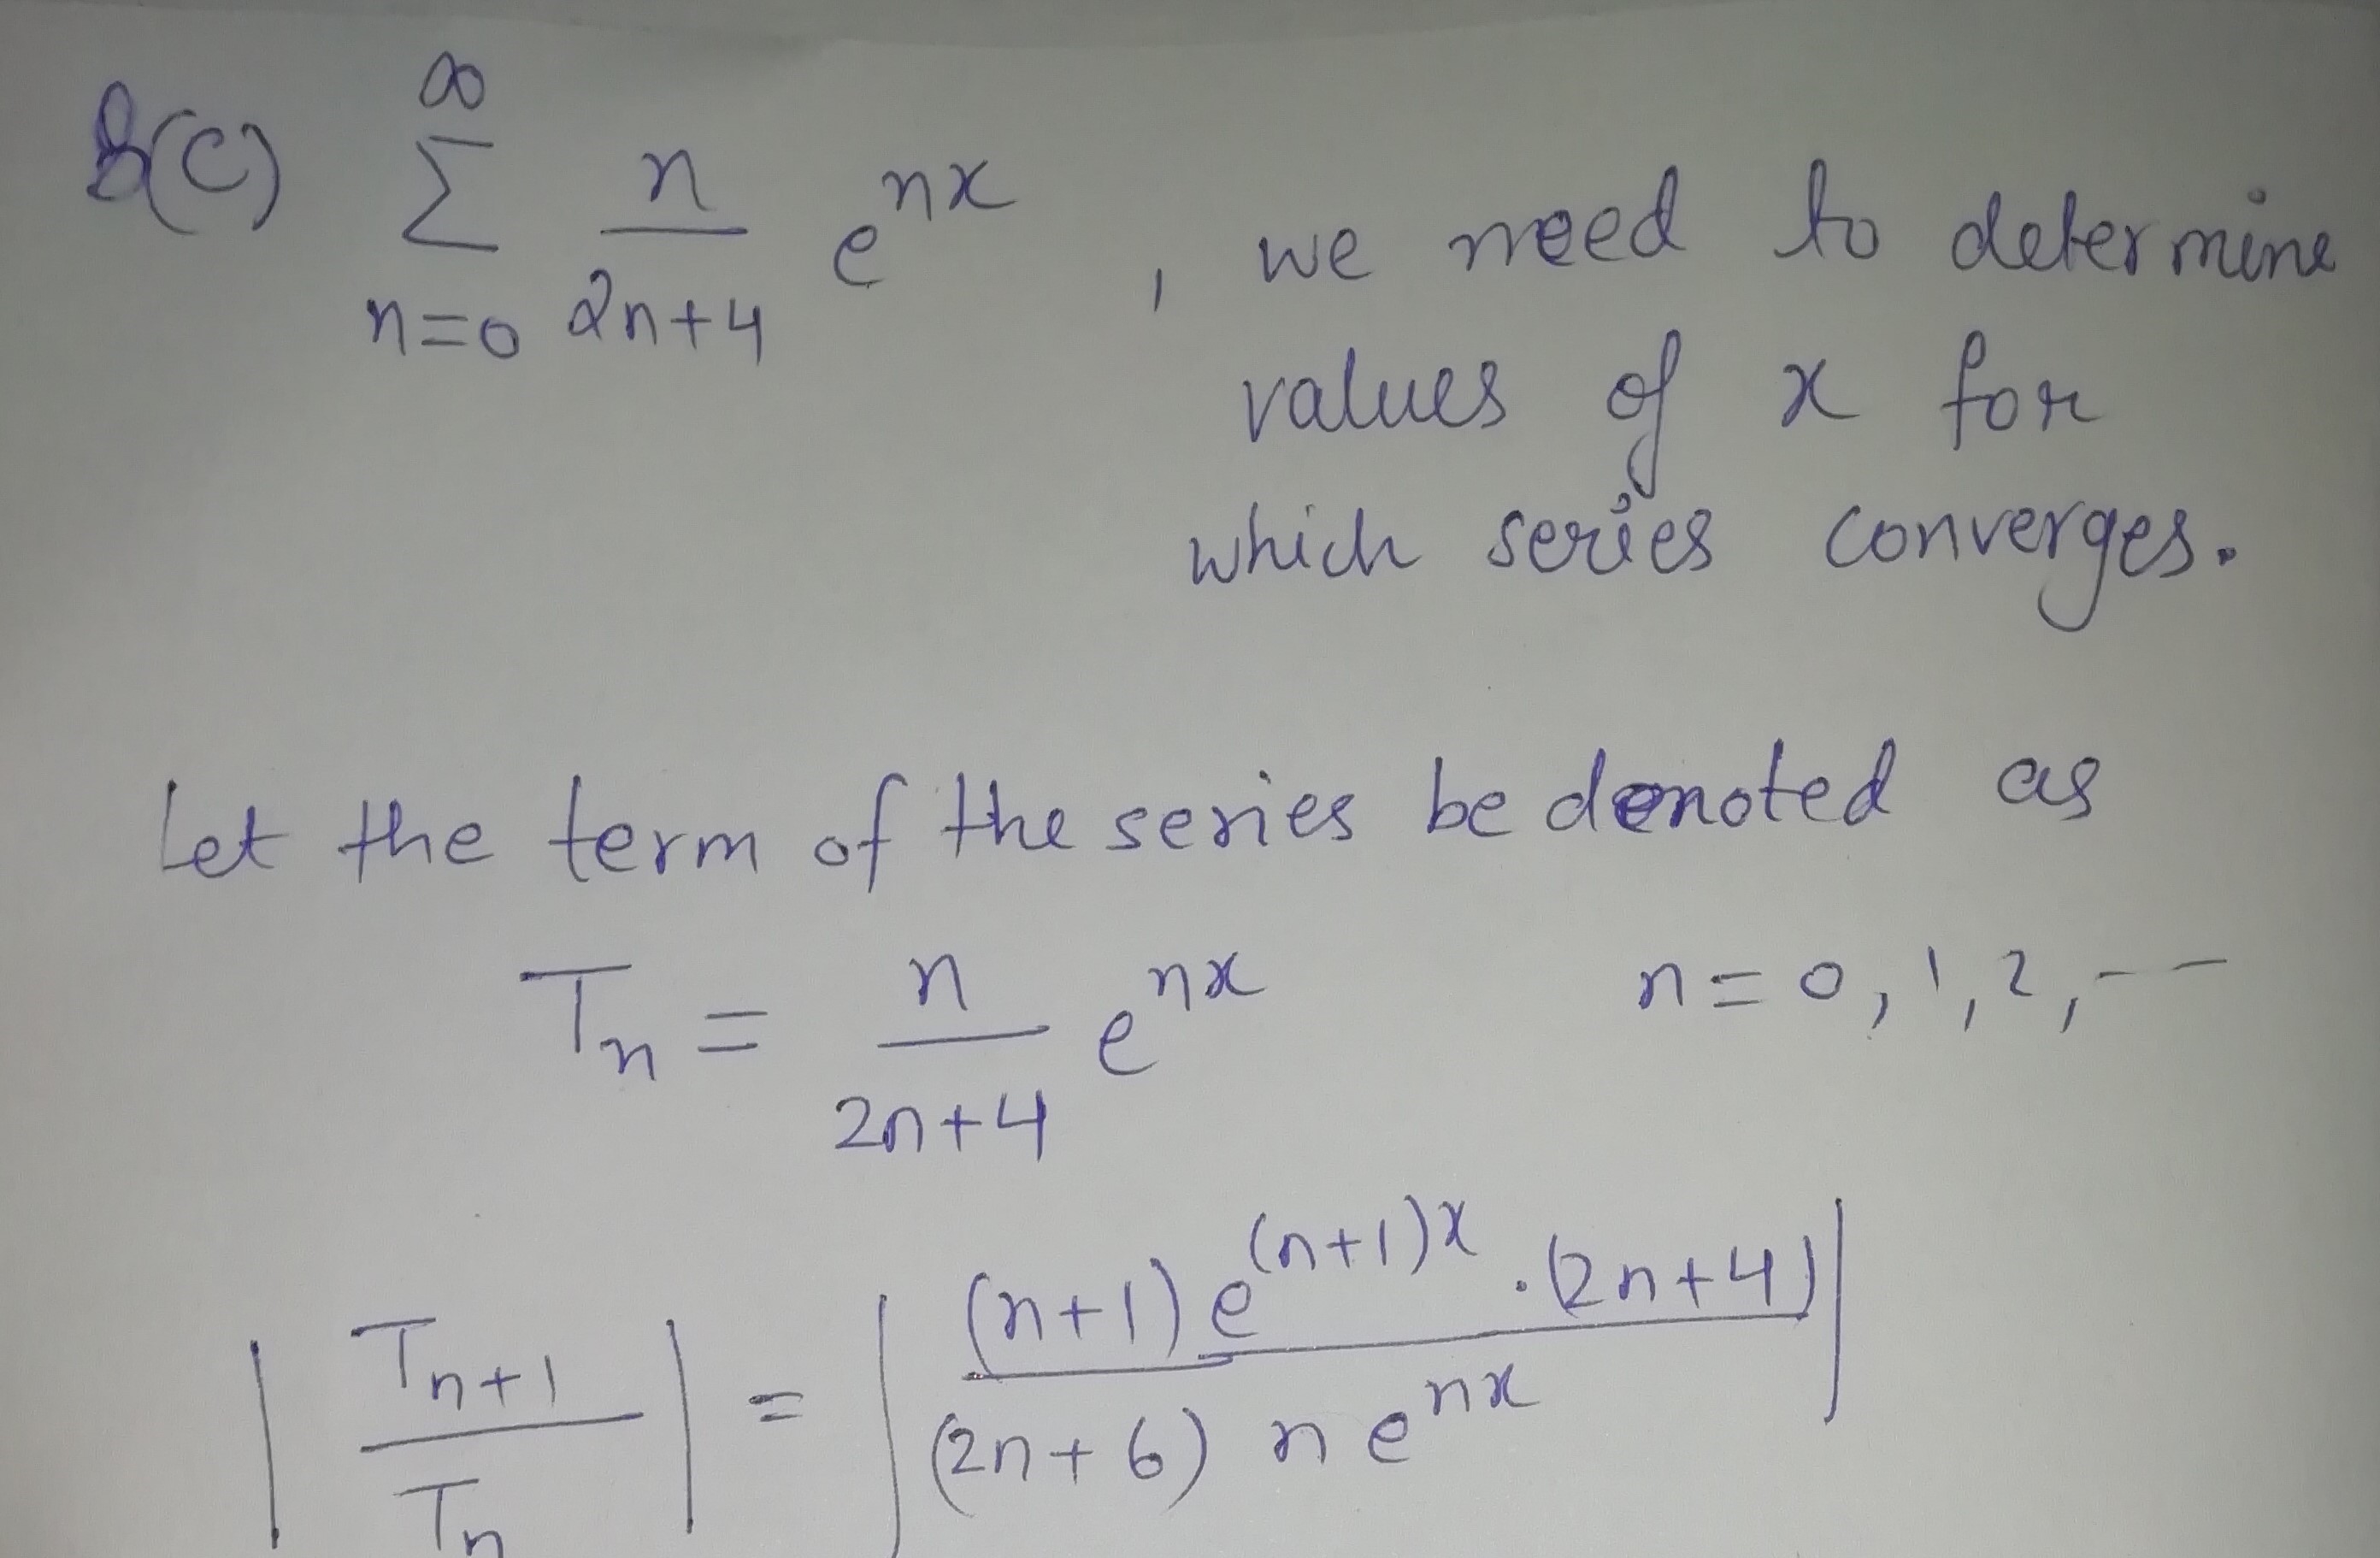 8(c) ∞ Σ n=0 n/(2n+4) e^(nx) , we need to determine
values of x for
which series converges.
Let the term of the series be denoted as
T_n = n/(2n+4) e^(nx) n=0,1,2,--
|T_(n+1)/T_n| = |(n+1) e^((n+1)x) . (2n+4) / (2n+6) n e^(nx)|